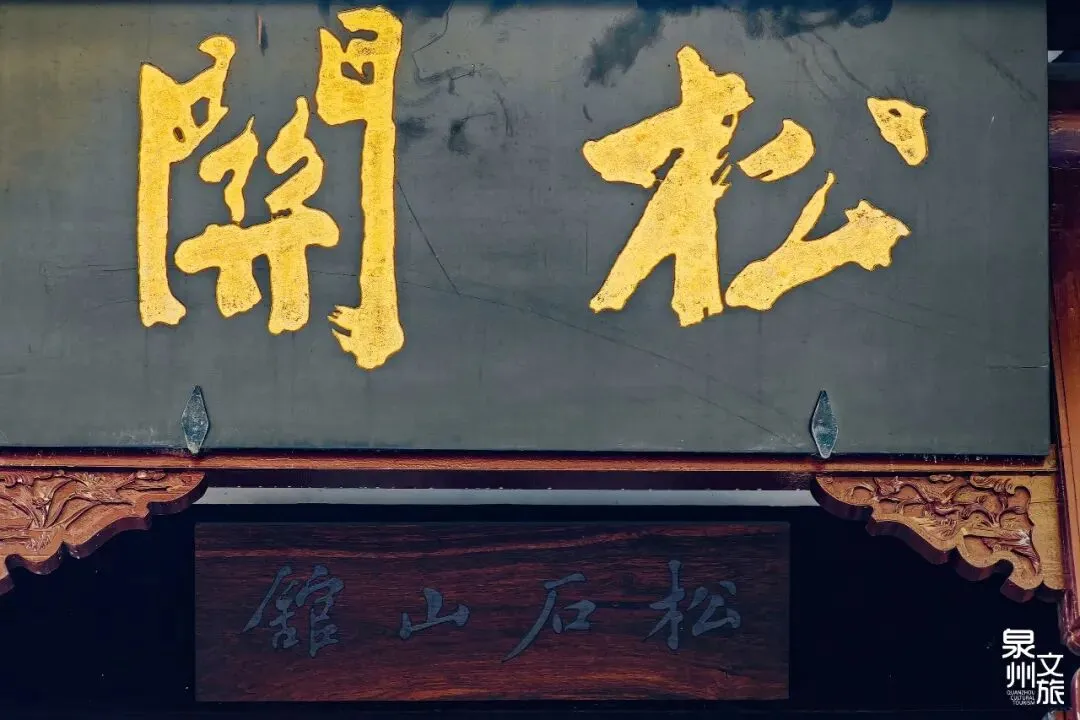 松關
松石山館
泉州
文旅
QUANZHOU
CULTURAL
TOURISM